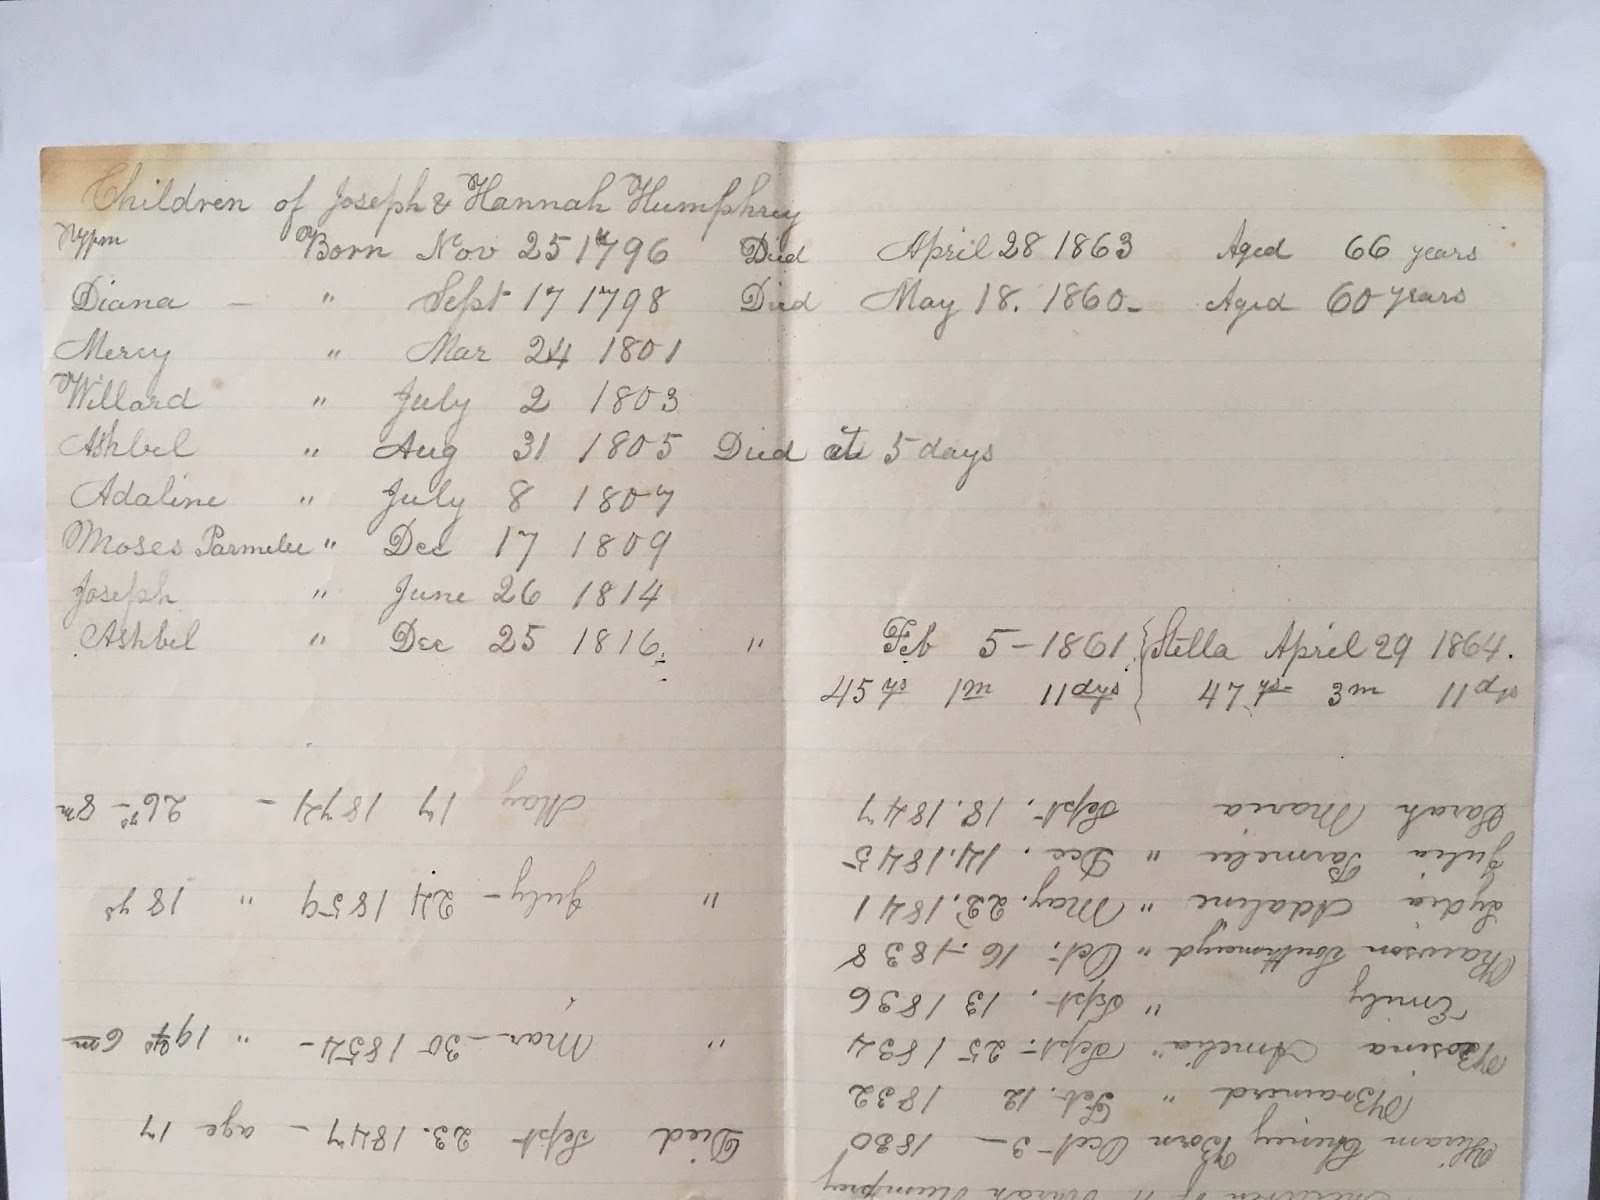 Children of Joseph & Hannah Humphrey
Born Nov 25 1796 Died April 28 1863 Aged 66 years
Diana — " Sept 17 1798 Died May 18. 1860- Aged 60 years
Mercy " Mar 24 1801
Willard " July 2 1803
Ashbel " Aug 31 1805 Died at 5 days
Adaline " July 8 1807
Moses Parmelee " Dec 17 1809
Joseph " June 26 1814
Ashbel " Dec 25 1816 " Feb 5-1861 } Stella April 29 1864.
45 ys 1m 11 dys } 47 ys 3m 11 ds
Children of Sarah Humprey
Hiram Born Oct 3 — 1830 Died Sept 23. 1847 - age 17
Brainerd " Feb. 12 1832
Rosina Amelia " Sept. 25 1834 " Mar - 30 1854 - " 19 ys 6m
Emily " Sept. 13 1836
Rawson Southmayd " Oct. 16 - 1838
Lydia Adaline " May. 22. 1841 " July - 24 1859 " 18 ys
Julia Parmelee " Dec. 14. 1845
Sarah Maria Sept. 18. 1847 May 17 1874 - 26 ys - 8m